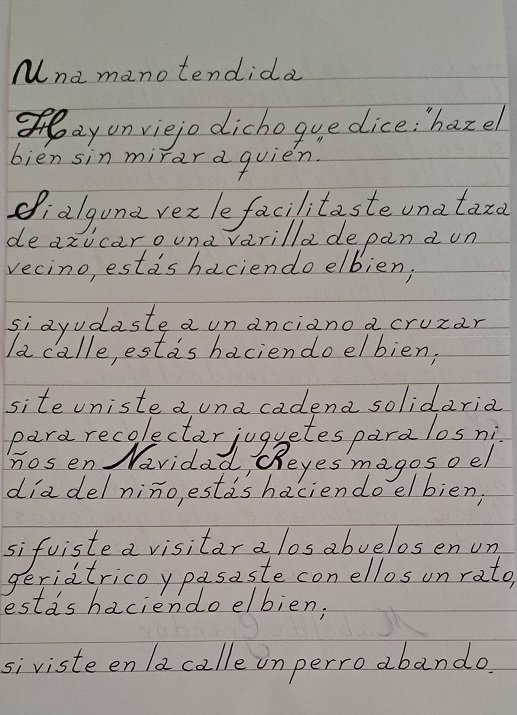 Una mano tendida
Hay un viejo dicho que dice: "haz el
bien sin mirar a quién".
Si alguna vez le facilitaste una taza
de azúcar o una varilla de pan a un
vecino, estás haciendo el bien;
si ayudaste a un anciano a cruzar
la calle, estás haciendo el bien;
si te uniste a una cadena solidaria
para recolectar juguetes para los ni-
ños en Navidad, Reyes magos o el
día del niño, estás haciendo el bien;
si fuiste a visitar a los abuelos en un
geriátrico y pasaste con ellos un rato,
estás haciendo el bien;
si viste en la calle un perro abando-